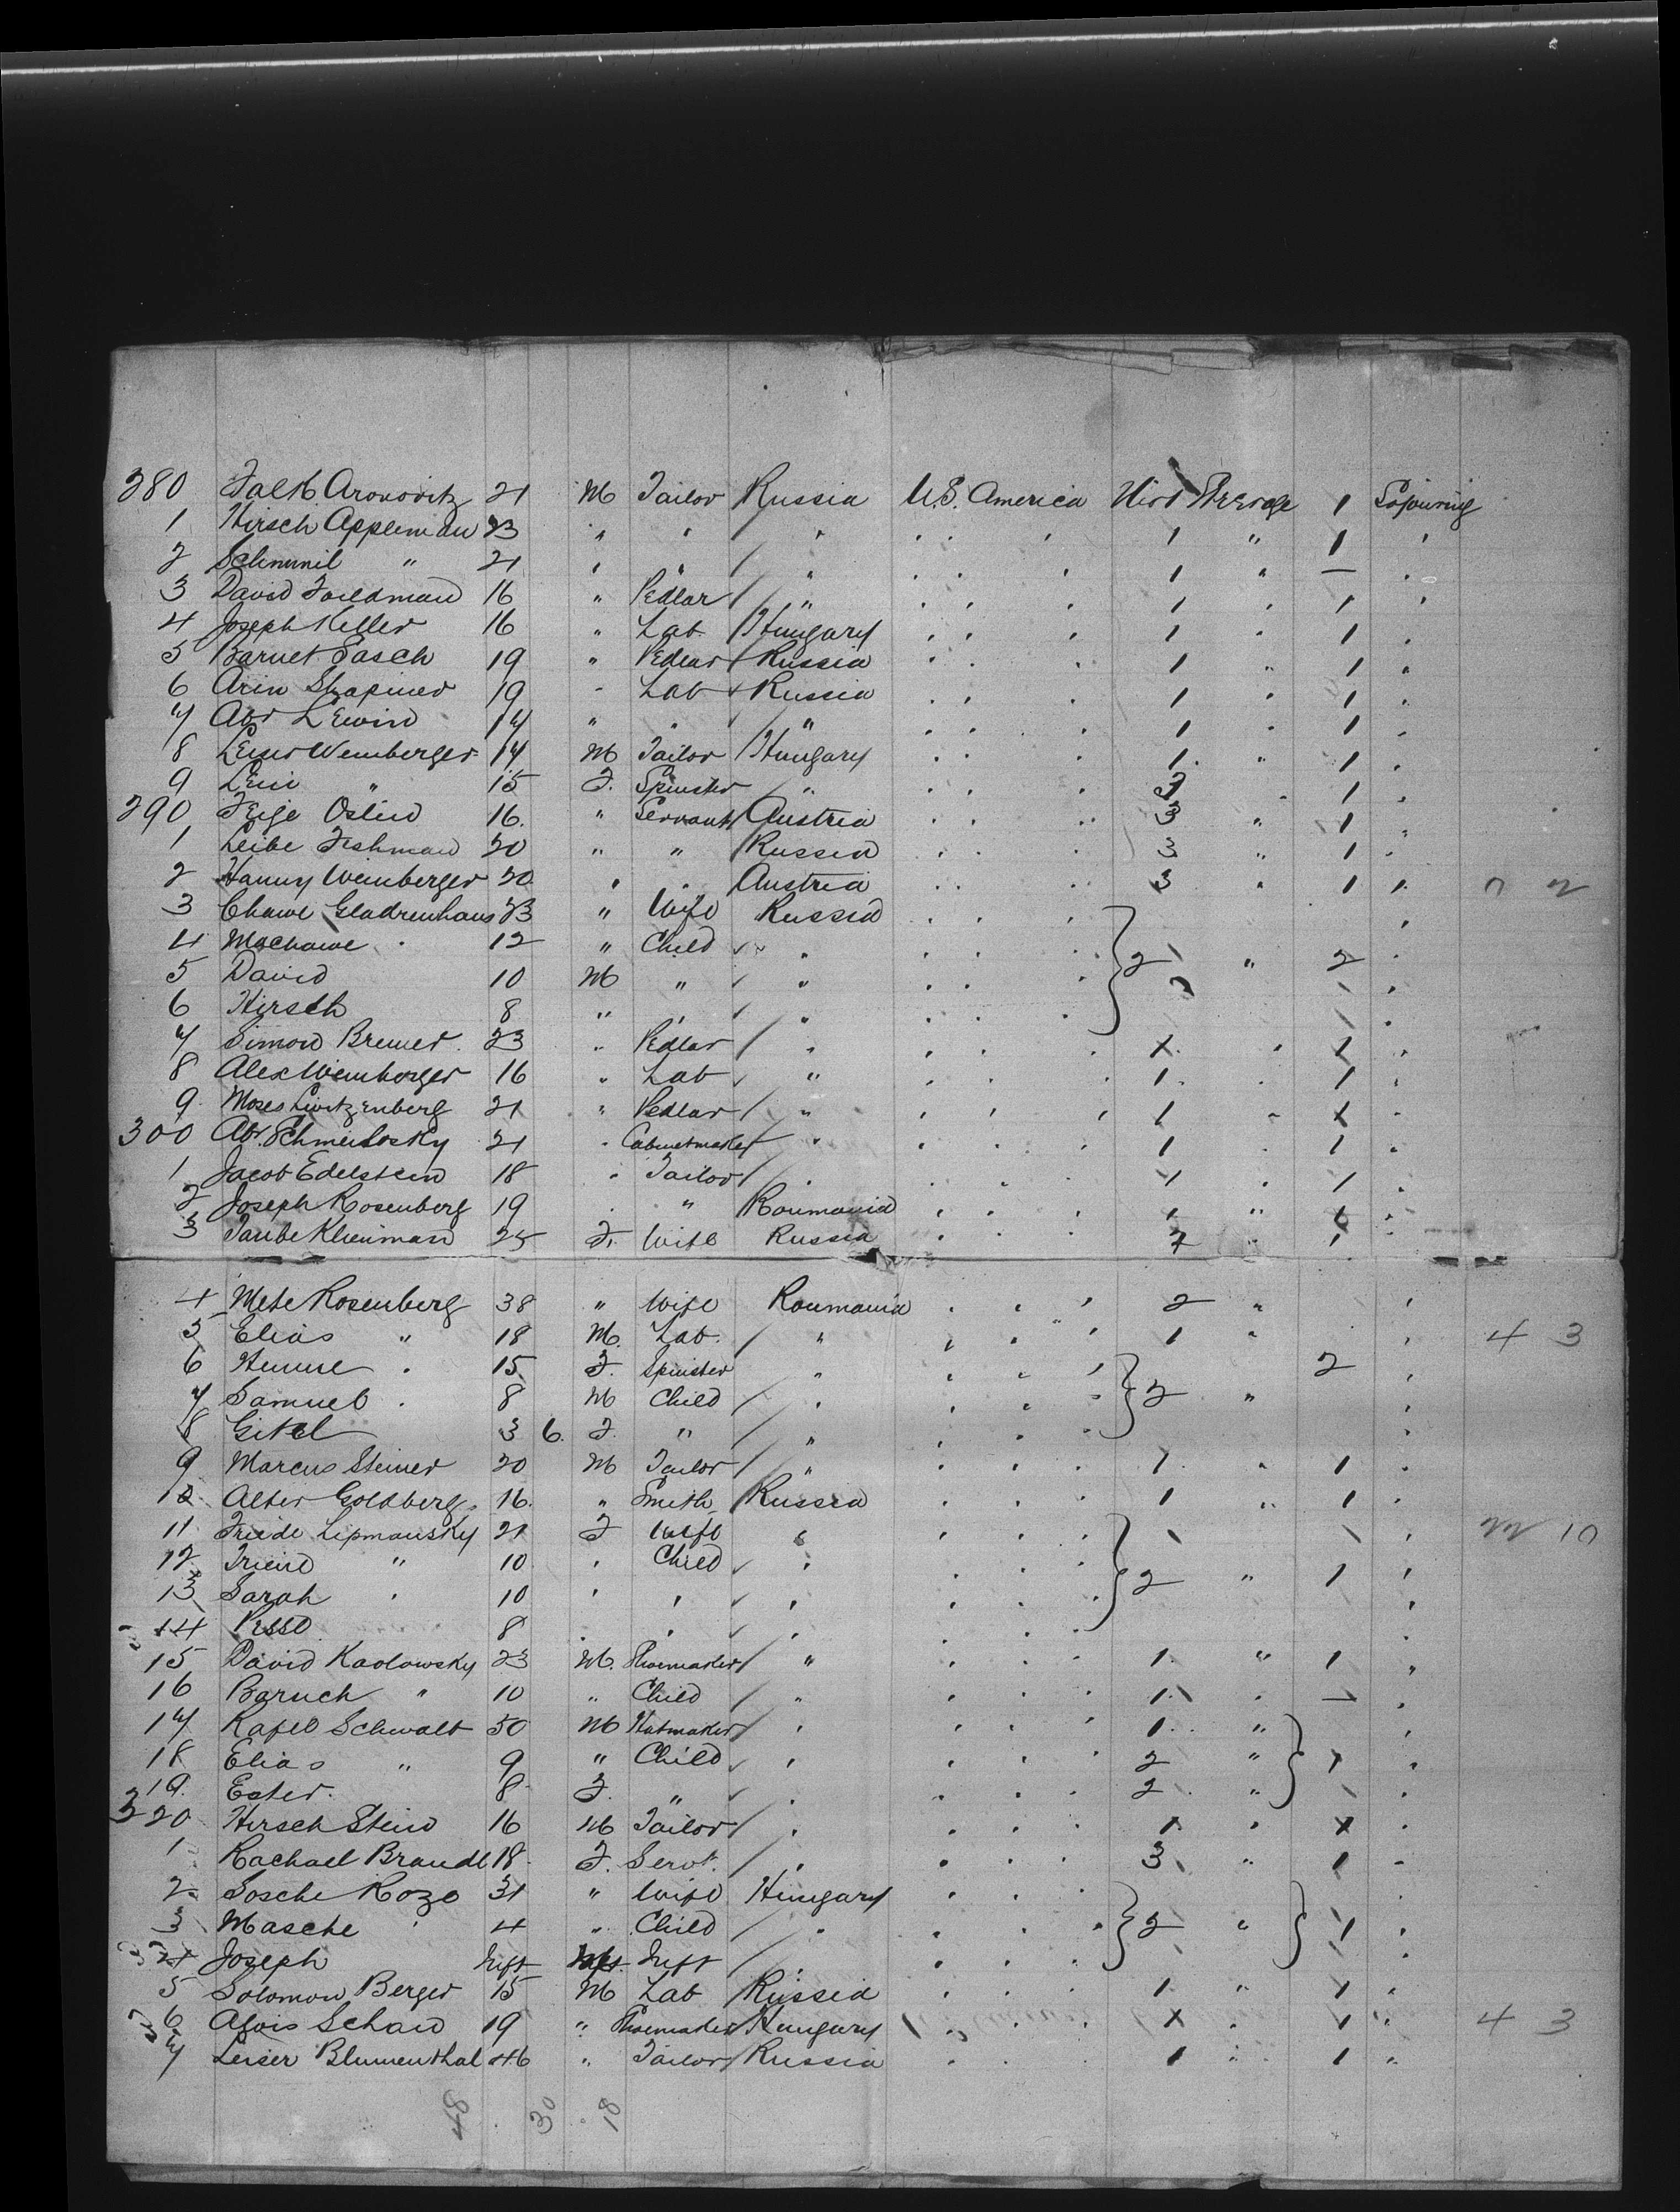 280 Falk Aronovitz 21 M Tailor Russia U.S. America 1 Sojouring
1 Hirsch Appleman 23 " " " " 1 " 1 "
2 Schmuil " 21 " " " " 1 " — "
3 David Faildman 16 " Pedlar " " 1 " 1 "
4 Joseph Keller 16 " Lab Hungary " 1 " 1 "
5 Barnet Sasch 19 " Pedlar Russia " 1 " 1 "
6 Arin Shapiner 19 " Lab Russia " 1 " 1 "
7 Abr Lewin 17 " " " " 1 " 1 "
8 Leiser Weinberger 17 M Tailor Hungary " 1 " 1 "
9 Leni " 15 F. Spinster " " 3 " 1 "
290 Feige Oslin 16 " Servant Austria " 3 " 1 "
1 Leibe Fishman 20 " " Russia " 3 " 1 "
2 Hanny Weinberger 20 " " Austria " 3 " 1 "
3 Chawe 23 " Wife Russia " "
4 Machawe " 12 " Child " " 2 " 2 "
5 David 10 M " " " "
6 Hirsch 8 " " " " "
7 Simon Bremer 23 " Pedlar " " 1 " 1 "
8 Alex Weinberger 16 " Lab " " 1 " 1 "
9 Moses 21 " Pedlar " " 1 " 1 "
300 Abr. 21 " Cabinetmaker " " 1 " 1 "
1 Jacob Edelstein 18 " Tailor " " 1 " 1 "
2 Joseph Rosenberg 19 " " Roumania " 1 " 1 "
3 Taube Kleinman 25 F. Wife Russia " " 1
4 Mete Rosenberg 38 " Wife Roumania " 2 " "
5 Elias " 18 M. Lab. " " 1 " " 4 3
6 Henne " 15 F. Spinster " " 2 "
7 Samuel " 8 M Child " " 2 " "
8 Gitel 3 6. F. " " " "
9 Marcus Steiner 20 M Tailor " " 1 " 1 "
10 Alter Goldberg 16 " Smith Russia " 1 " 1 "
11 Friede Lipmansky 21 F Wife " " " 10
12 " 10 " Child " " 2 " 1 "
13 Sarah " 10 " " " " "
14 Pesse 8 " " " " "
15 David Kaolowsky 23 M. Shoemaker " " 1 " 1 "
16 Baruch " 10 " Child " " 1 " — "
17 Rafel Schwalt 50 M Hatmaker " " 1 " "
18 Elias " 9 " Child " " 2 " 1 "
19 Ester 8 F. " " " 2 " "
320 Hirsch Stein 16 M Tailor " " 1 " 1 "
1 Rachael Brandl 18 F. Servt. " " 3 " 1 "
2 Sosche Rozo 31 " Wife Hungary " "
3 Masche " 4 " Child " " 2 " 1 "
4 Joseph Inft Inft " " "
5 Solomon Berger 15 M Lab Russia " 1 " 1 "
6 Alois Schaw 19 " Shoemaker Hungary " 1 " 1 " 4 3
7 Leiser Blumenthal 46 " Tailor Russia " 1 " 1 "
48 30 18